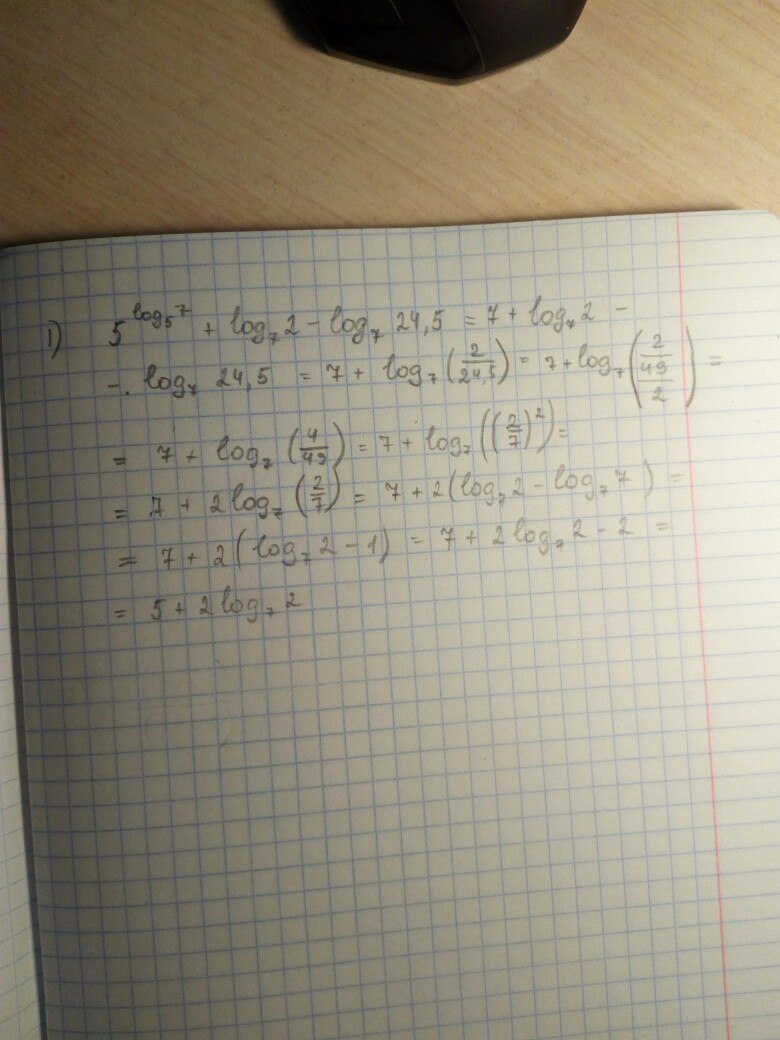 1) 5^(log₅7) + log₇2 - log₇ 24,5 = 7 + log₇2 -
-. log₇ 24,5 = 7 + log₇(2/24,5) = 7 + log₇(2/(49/2)) =
= 7 + log₇(4/49) = 7 + log₇((2/7)²) =
= 7 + 2log₇(2/7) = 7 + 2(log₇2 - log₇7) =
= 7 + 2(log₇2 - 1) = 7 + 2log₇2 - 2 =
= 5 + 2log₇2